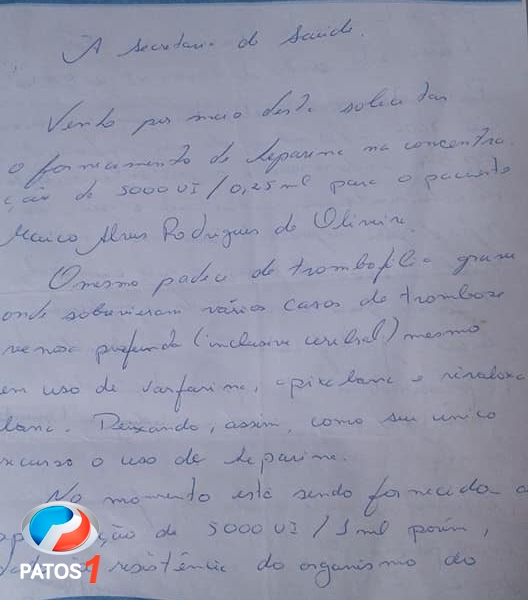 À secretaria de Saúde.
Venho por meio desta solicitar
o fornecimento de heparina na concentra
ção de 5000 UI/0,25 ml para o paciente
Marco Alves Rodrigues de Oliveira.
O mesmo padece de trombofilia grave
onde sobrevieram vários casos de trombose
venosa profunda (inclusive cerebral) mesmo
em uso de varfarina, apixabana e rivaroxa
bana. Deixando, assim, como seu único
recurso o uso de heparina.
No momento está sendo fornecida a
ção de 5000 UI/1 ml porém,
resistência do organismo do
PATOS 1